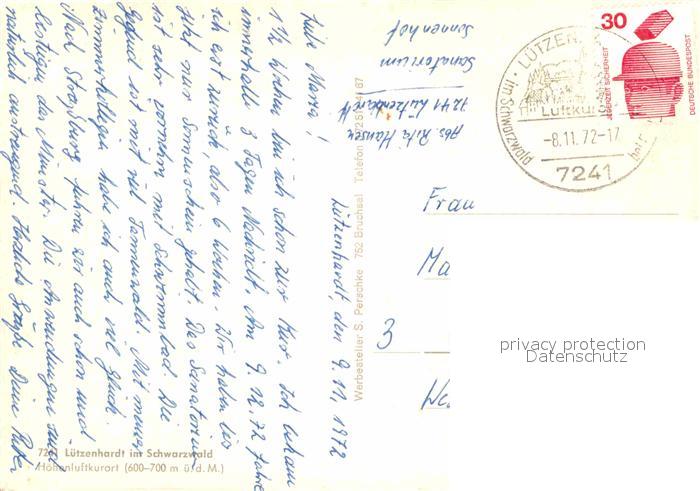 Lützenhardt, den 9.11.1972
Liebe Marra!
1½ Wochen bin ich schon zur Kur. Ich bekam
innerhalb 8 Tagen Nachricht. Am 9.12.72 fahre
ich erst zurück, also 6 Wochen. Wir haben bis
jetzt nur Sonnenschein gehabt. Das Sanatorium
ist sehr vornehm mit Schwimmbad. Die
Gegend ist mit viel Tannenwald. Mit meiner
Zimmerkollegin habe ich auch viel Glück.
Nach Straßburg fuhren wir auch schon und
besichtigten das Münster. Die Anwendungen sind
natürlich anstrengend. Herzliche Grüße Deine
Abs. Rita Hansen
7241 Lützenhardt
Sanatorium
Sonnenhof
7241 Lützenhardt im Schwarzwald
Höhenluftkurort (600-700 m ü. d. M.)
Werbesteller S. Perschke 752 Bruchsal Telefon
Frau
Ma
3
We
LÜTZEN
im Schwarzwald
Luftkur
-8.11.72-17
7241
30
JEDERZEIT SICHERHEIT
DEUTSCHE BUNDESPOST
privacy protection
Datenschutz